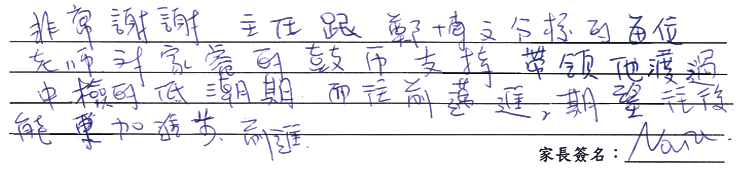 非常謝謝 主任跟鄭博文分校的每位
老師對家睿的鼓励支持 帶領他渡過
中模的低潮期 而往前邁進,期望往後
能更加進步.前進.
家長簽名: